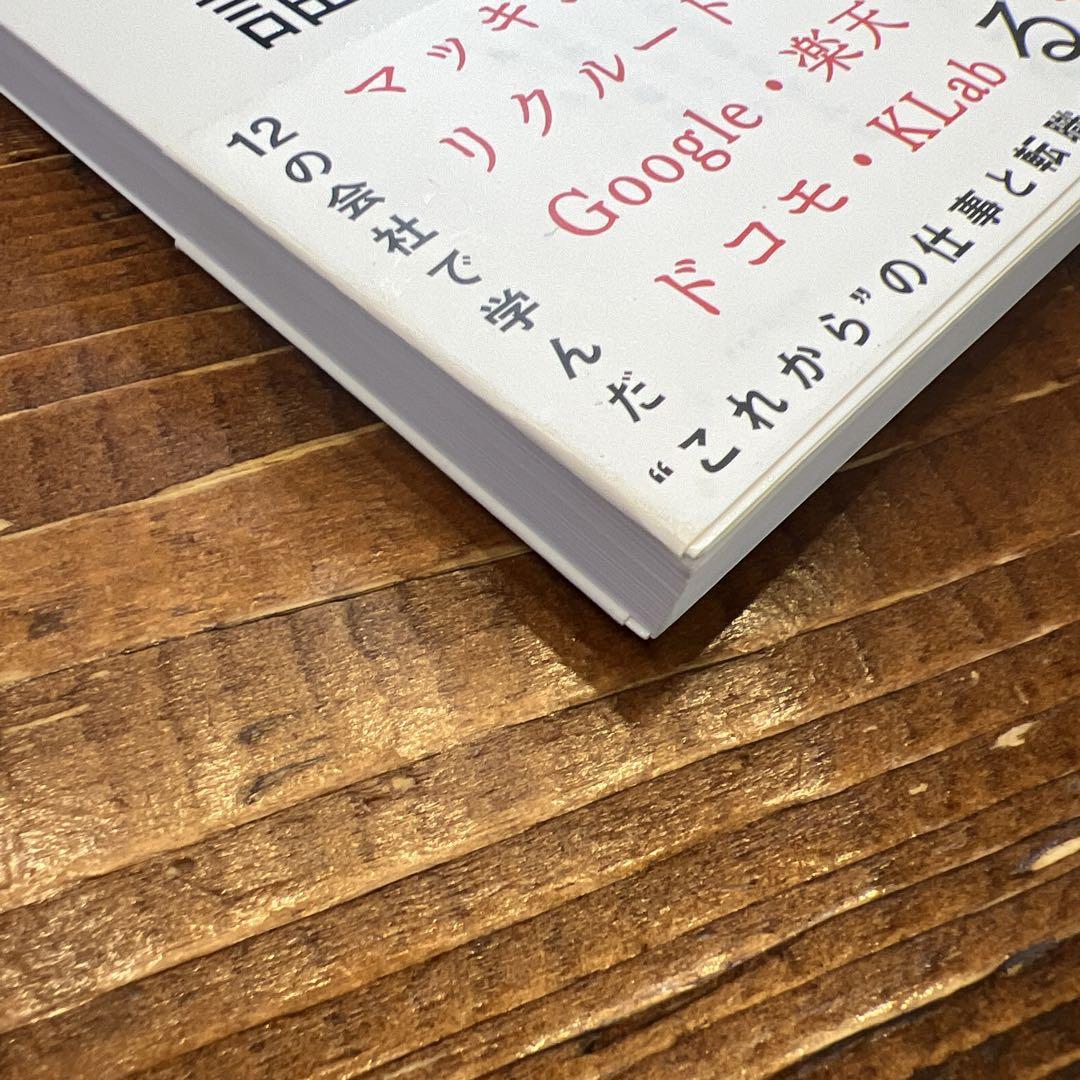 マッキ
リクルート
Google・楽天
ドコモ・KLab
る
12の会社で学んだ
“これから”の仕事と転職